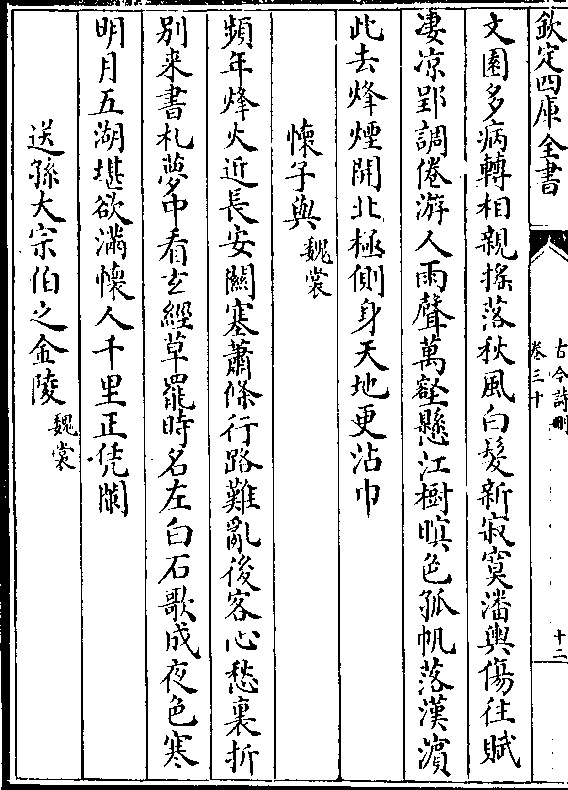 欽定四庫全書
古今詩刪
卷三十
十二
文園多病轉相親搖落秋風白髮新寂寞潘輿傷往賦
凄凉郢調倦游人雨聲萬壑懸江樹暝色孤帆落漢濱
此去烽煙開北極側身天地更沾巾
懷子與 魏裳
頻年烽火近長安關塞蕭條行路難亂後客心愁裏折
别来書札夢中看玄經草罷時名左白石歌成夜色寒
明月五湖堪欲滿懷人千里正凭闌
送孫大宗伯之金陵 魏裳